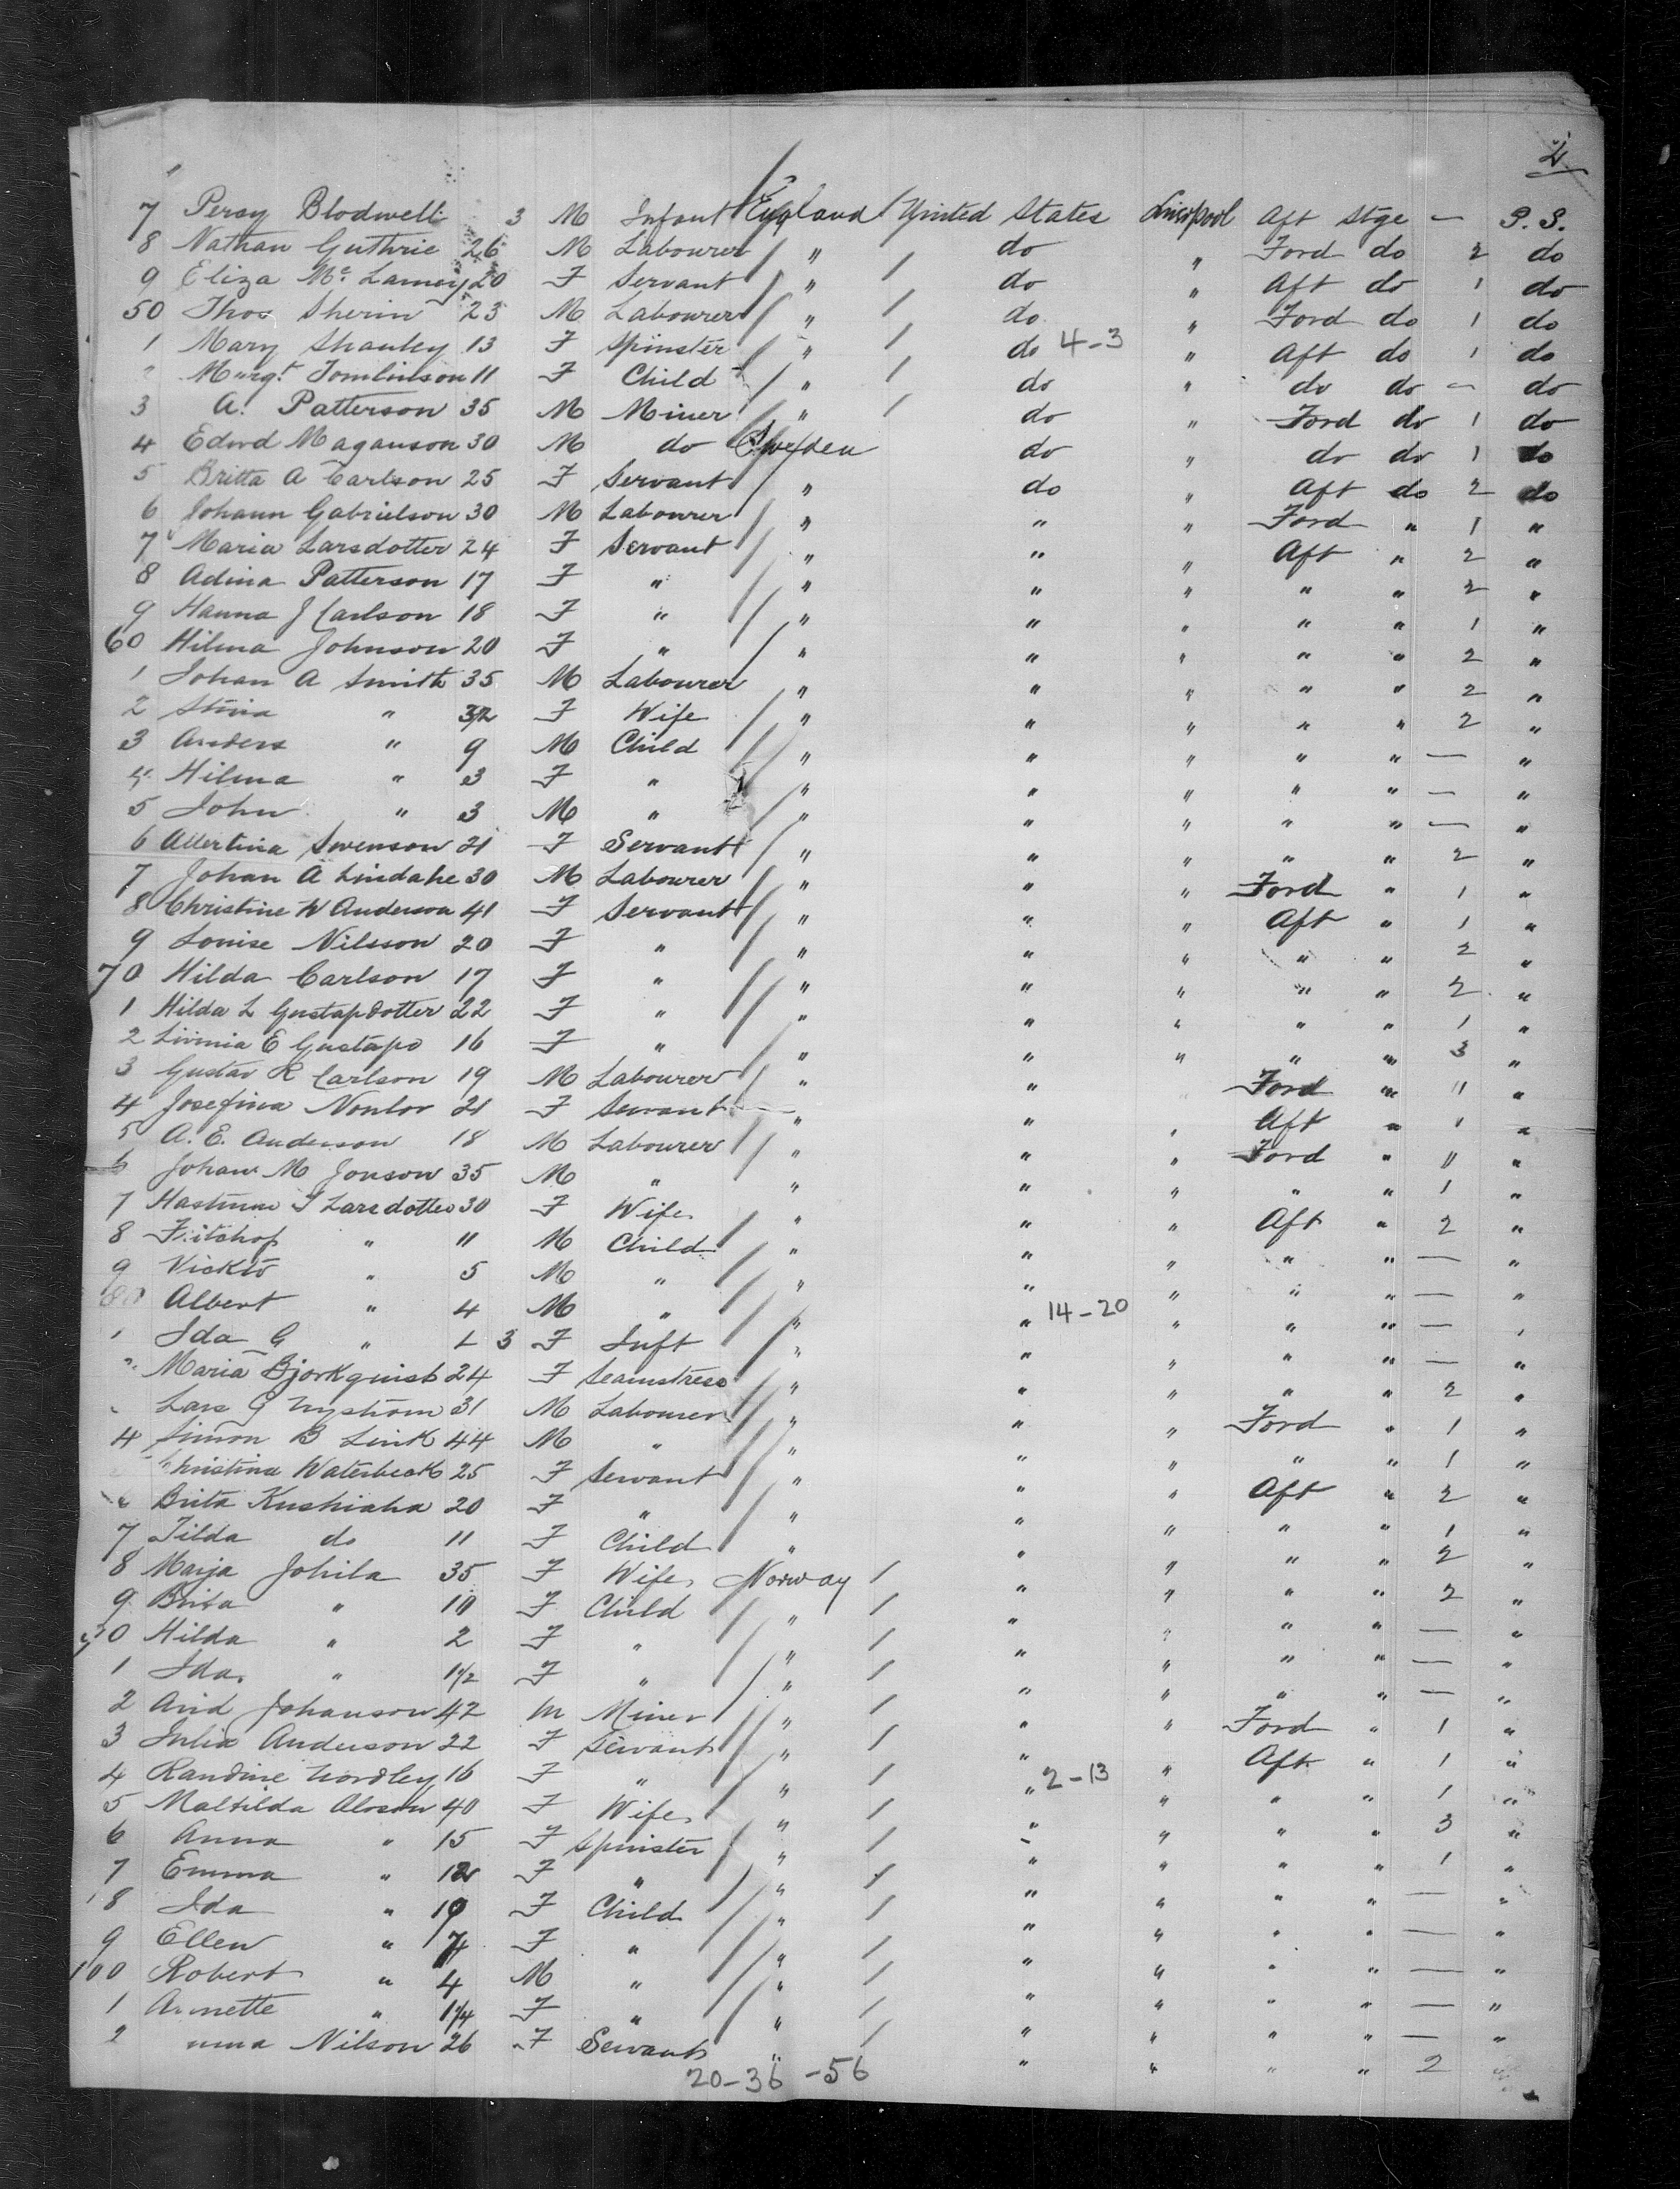 4
7 Percy Blodwell 3 M Infant England / United States Liverpool Aft Stge — P. S.
8 Nathan Guthrie 26 M Labourer / " / do " Ford do 2 do
9 Eliza Mc Lamey 20 F Servant / " / do " Aft do 1 do
50 Thos Sherin 23 M Labourer / " / do " Ford do 1 do
1 Mary Shanley 13 F Spinster / " / do 4-3 " Aft do 1 do
Margt. Tomlinson 11 F Child / " / do " do do — do
3 A. Patterson 35 M Miner / " / do " Ford do 1 do
4 Edwd Maganson 30 M do Sweden do " do do 1 do
5 Britta A Carlson 25 F Servant / " do " Aft do 2 do
6 Johann Gabrielson 30 M Labourer / " " " Ford " 1 "
7 Maria Larsdotter 24 F Servant / " " " Aft " 2 "
8 Adina Patterson 17 F " / " " " " " 2 "
9 Hanna J Carlson 18 F " / " " " " " 1 "
60 Hilma Johnson 20 F " / " " " " " 2 "
1 Johan A Smith 35 M Labourer " " " " " 2 "
2 Stina " 32 F Wife / " " " " " 2 "
3 Anders " 9 M Child / " " " " " — "
4 Hilma " 3 F " / " " " " " — "
5 John " 3 M " / " " " " " — "
6 Albertina Swenson 21 F Servant / " " " " " 2 "
7 Johan A Lindahe 30 M Labourer / " " " Ford " 1 "
8 Christine W Anderson 41 F Servant / " " " Aft " 1 "
9 Louise Nilsson 20 F " / " " " " " 2 "
70 Hilda Carlson 17 F " / " " " " " 2 "
1 Hilda L Gustafdotter 22 F " / " " " " " 1 "
2 Livinia E Gustafo 16 F " / " " " " " 3 "
3 Gustav R Carlson 19 M Labourer / " " Ford " 11 "
4 Josefina Nonlov 21 F Servant " " " Aft " 1 "
5 A. E. Anderson 18 M Labourer / " " " Ford " 11 "
6 Johan M Jonson 35 M " " " " " " 1 "
7 T Larsdotter 30 F Wife " " " Aft " 2 "
8 " 11 M Child / " " " " " — "
9 Vickto " 5 M " / " " " " " — "
80 Albert " 4 M " / " " 14-20 " " " — "
1 Ida G " 1 3 F Inft / " " " " " — "
Maria Bjorkquist 24 F Seamstress / " " " " " 2 "
Lars G Nystrom 31 M Labourer / " " " Ford " 1 "
4 Simon B Link 44 M " / " " " " " 1 "
Christina Waterbeck 25 F Servant / " " " Aft " 2 "
6 Brita Kushiaha 20 F " / " " " " " 1 "
7 Tilda do 11 F Child " " " " " 2 "
8 Marja Johila 35 F Wife Norway / " " " " 2 "
9 Brita " 10 F Child / " / " " " " — "
90 Hilda " 2 F " / " / " " " " — "
1 Ida " 1 1/2 F " / " / " " " " — "
2 Arid Johanson 42 M Miner / " / " " Ford " 1 "
3 Julia Anderson 22 F Servant / " / " " Aft " 1 "
4 Randine Nordley 16 F " / " / " 2-13 " " " 1 "
5 Maltilda Aloson 40 F Wife " / " " " " 3 "
6 Anna " 15 F Spinster / " / " " " " 1 "
7 Emma " 12 F " / " / " " " " — "
8 Ida " 10 F Child / " / " " " " — "
9 Ellen " 7 F " / " / " " " " — "
100 Robert " 4 M " / " / " " " " — "
1 Annette " 1 1/4 F " / " / " " " " — "
2 Nilson 26 F Servant " / " " " " 2
20-36-56